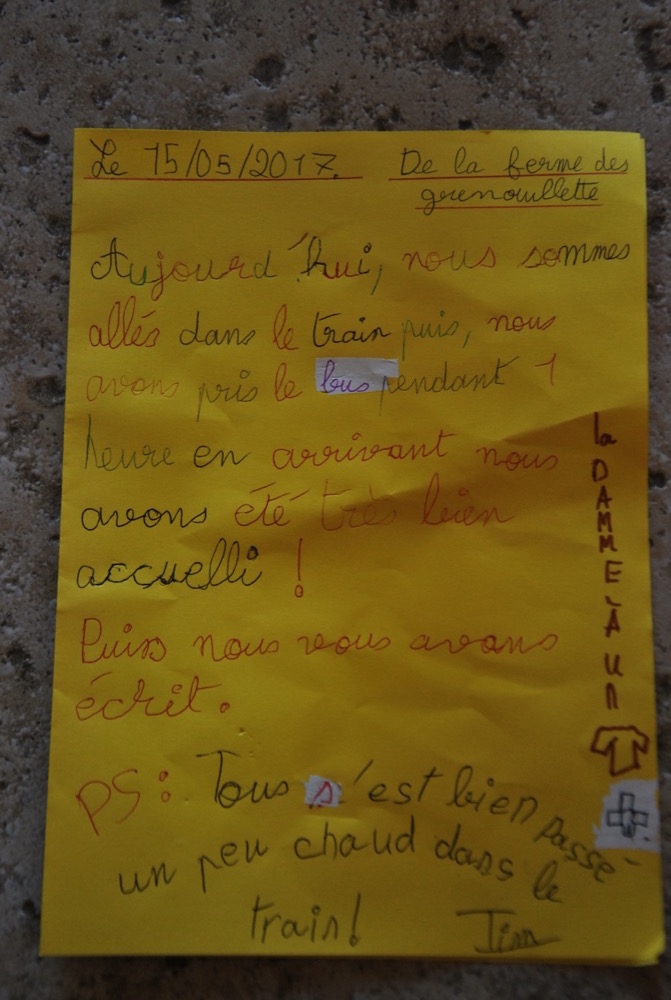 Le 15/05/2017. De la ferme des
grenouillette
Aujourd'hui, nous sommes
allés dans le train puis, nous
avons pris le bus pendant 1
heure en arrivant nous
avons été très bien
accuelli !
Puis nous vous avons
écrit.
la DAMME À un
PS: Tous s'est bien passé
un peu chaud dans le
train!